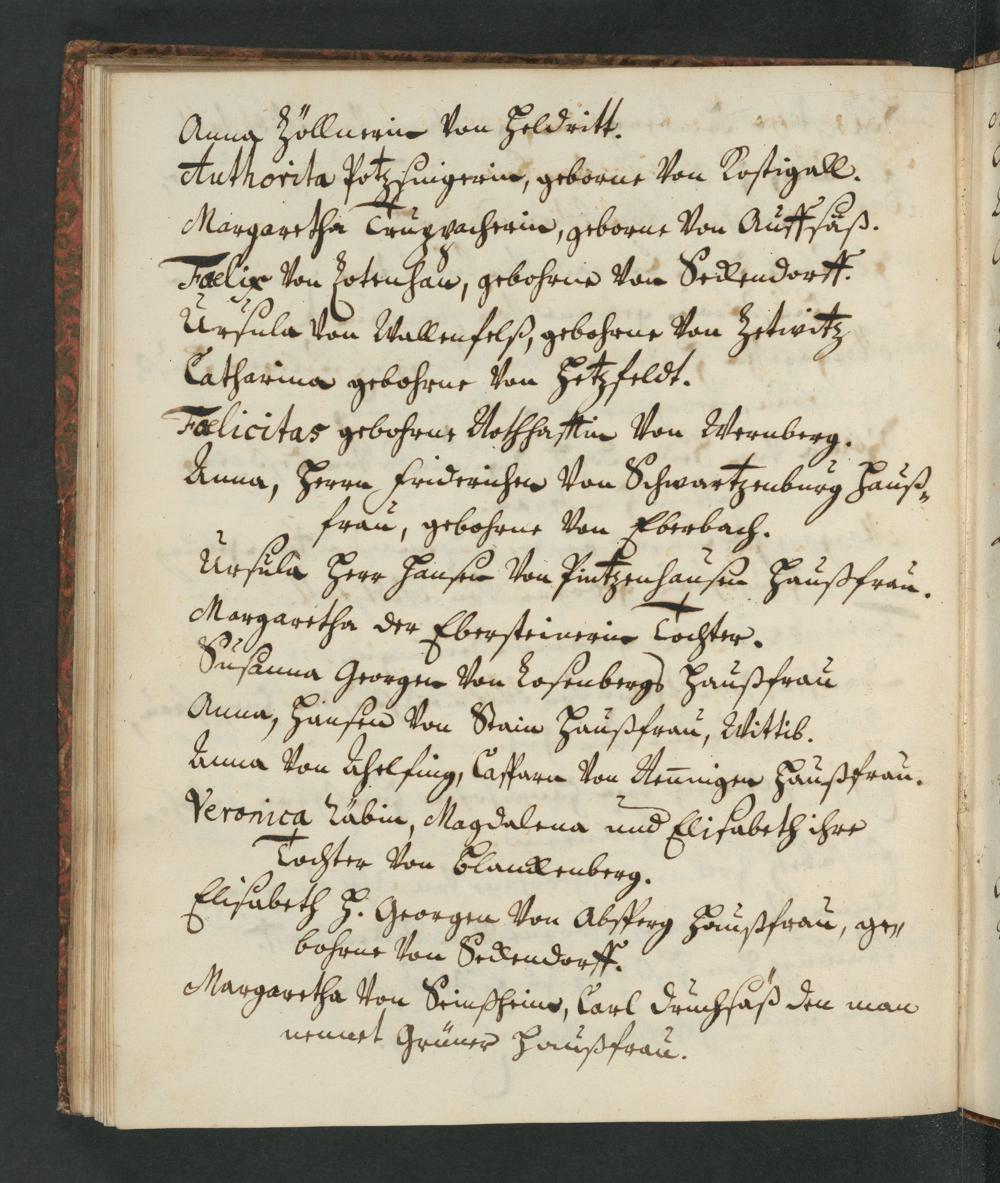 Anna Zöllnerin von Heldritt.
Authorita Potzsingerin, geborne von Rostigall.
Margaretha Truppacherin, geborne von Auffsäß.
Fœlix von Rotenhan, gebohrne von Seckendorff.
Ursula von Wallenfelß, gebohrne von Zetwitz
Catharina gebohrne von Hetzfeldt.
Fœlicitas gebohrne Nothhafftin von Wernberg.
Anna, Herrn Friderichen von Schwartzenburg Hauß„
frau, gebohrne von Eberbach.
Ursula Herr Hansen von Pintzenhausen Haußfrau.
Margaretha der Ebersteinerin Tochter.
Susanna Georgen von Rosenbergs Haußfrau
Anna, Hansen von Stain Haußfrau, Wittib.
Anna von Ahelfing, Casparn von Nenningen Haußfrau.
Veronica Räbin, Magdalena und Elisabeth ihre
Tochter von Blanckenberg.
Elisabeth H. Georgen von Absperg Haußfrau, ge„
bohrne von Seckendorff.
Margaretha von Seinßheim, Carl Druchsäß den man
nennet Grüner Haußfrau.